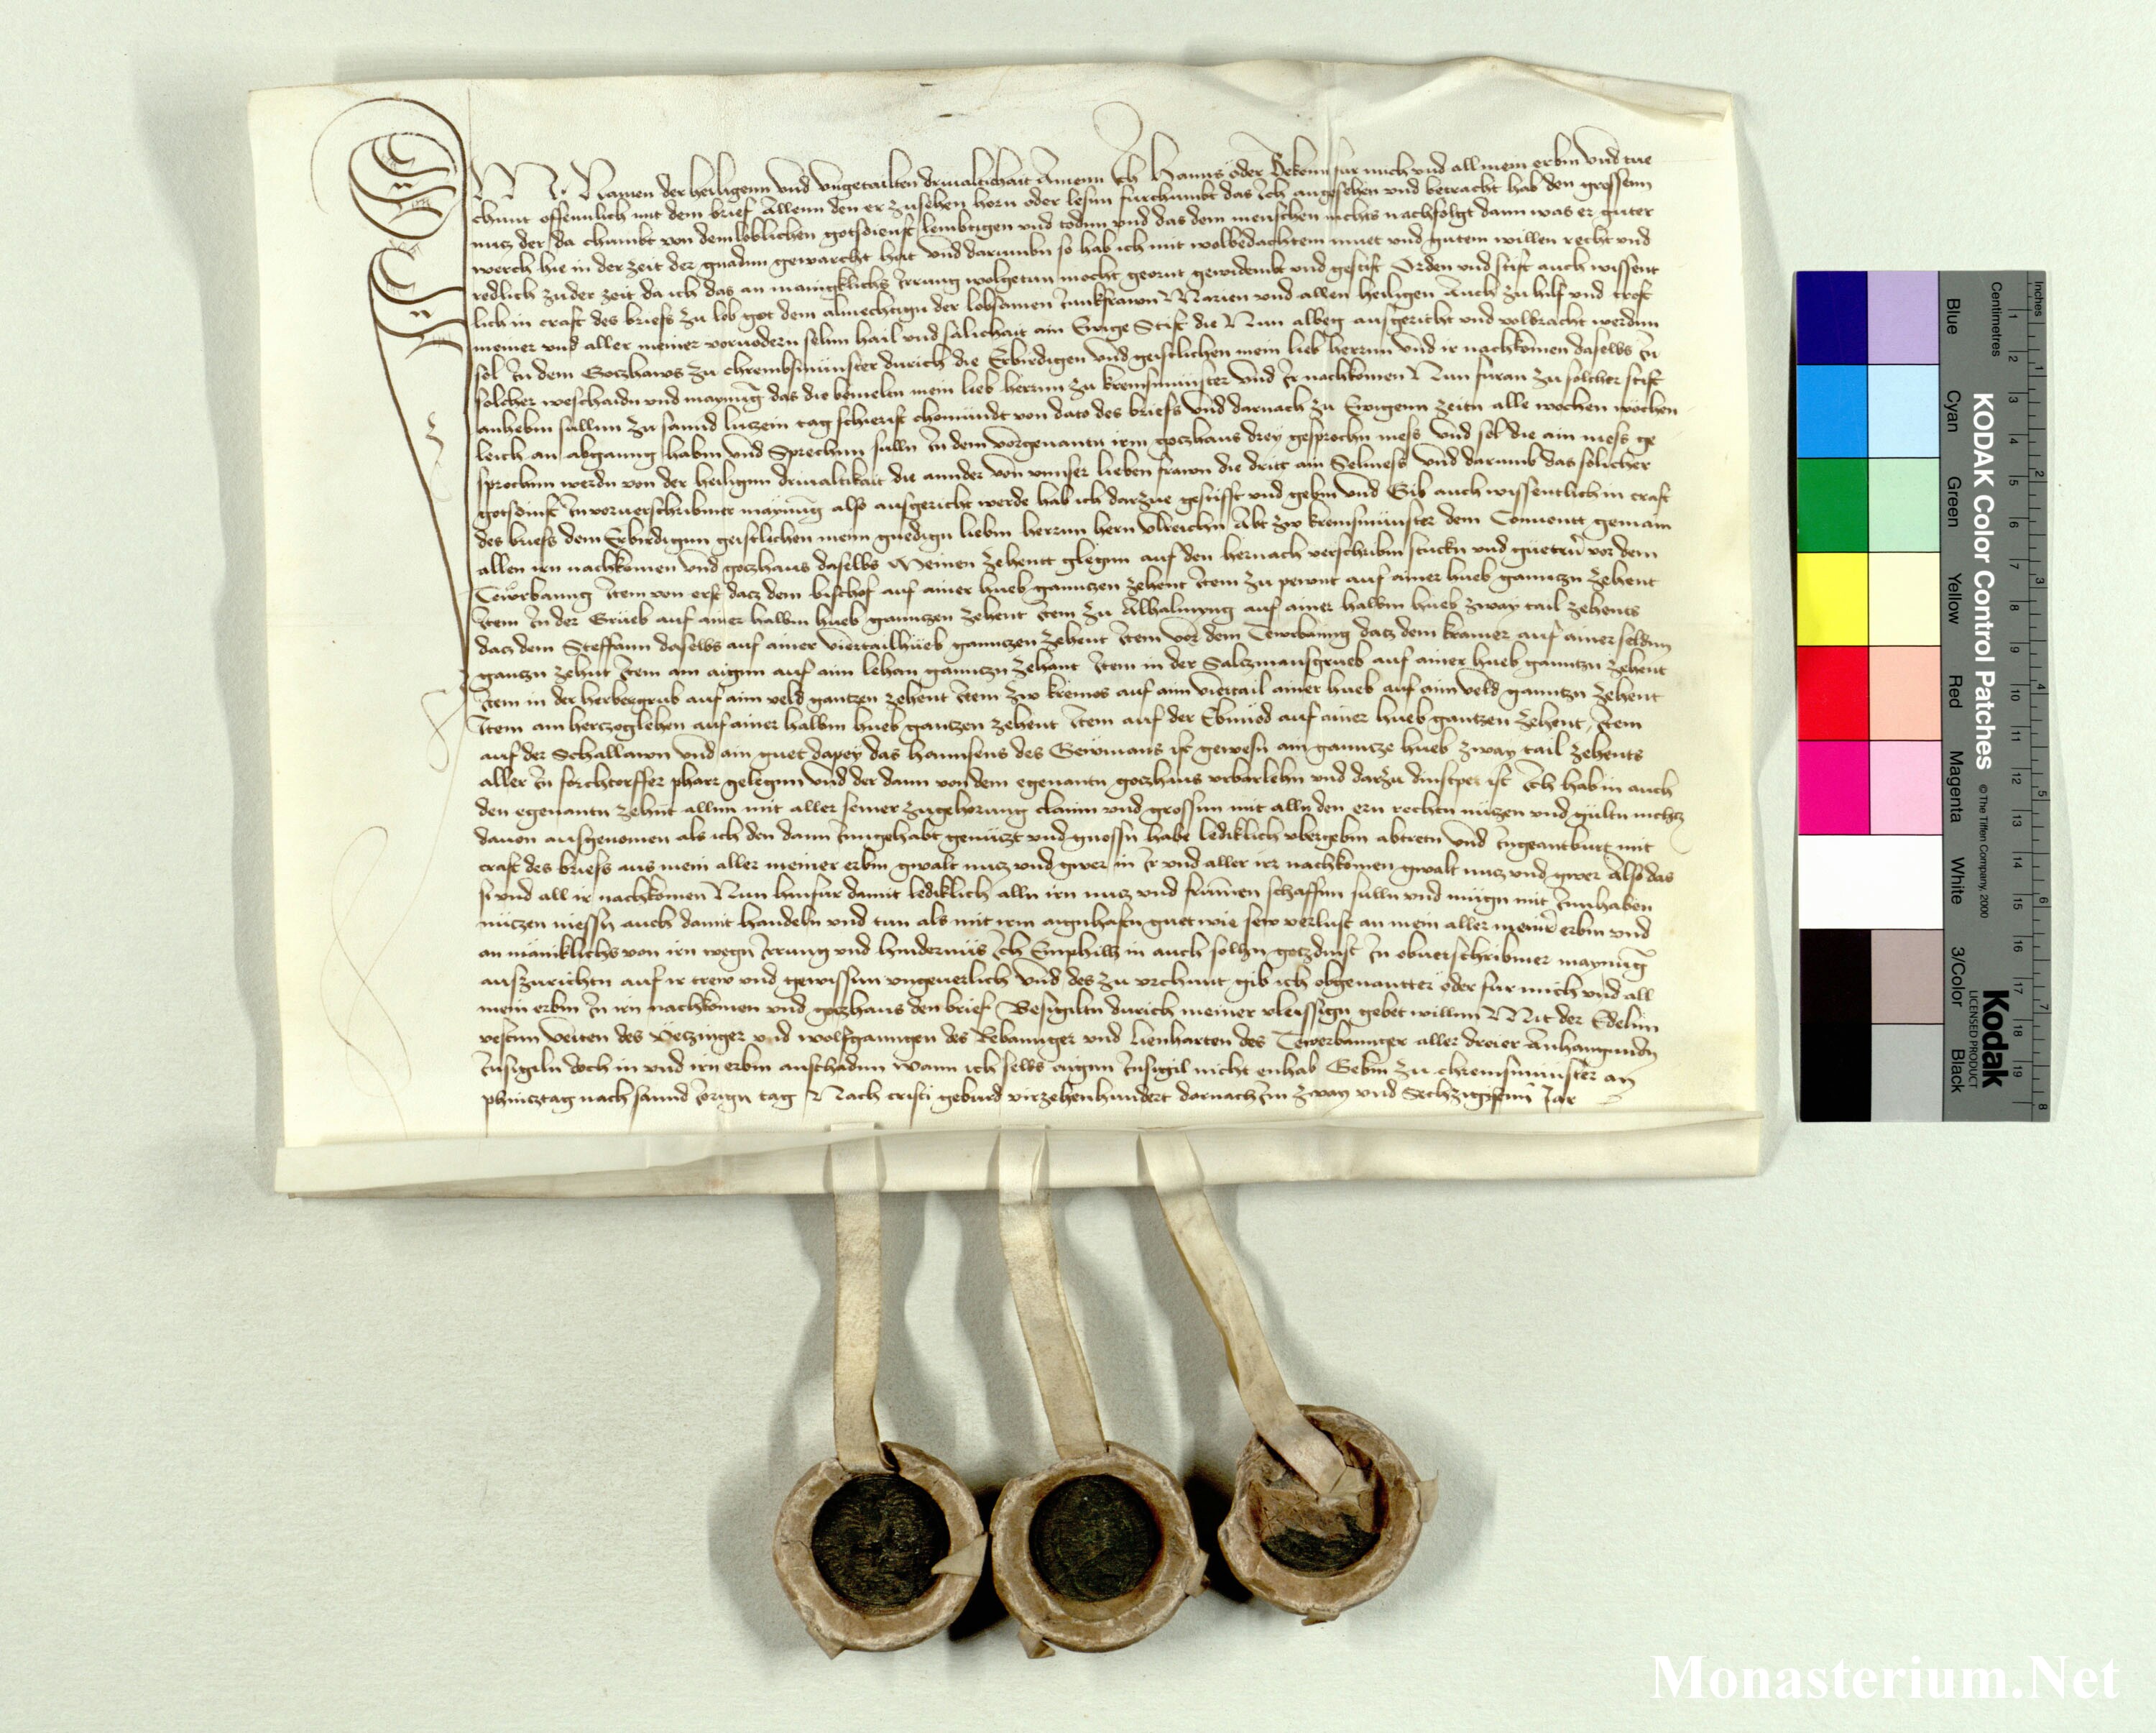 IN N Namen der heiligenn vnd vngetailten driualtichait Amenn Ich Hanns öder Bekenn fur mich vnd all mein erbm vnd tue
chunt offennlich mit dem brief Allenn den er zusehen horn oder lesnn furchumbt das Ich angesehen vnd betracht hab den grossenn
nucz der da chumbt von dem loblichen gotsdienst lembtigen vnd todnn vnd das dem menschen nichts nachfolgt dann was er guter
werch hie in der zeit der gnadnn gewarcht hat vnd darumbn so hab ich mit wolbedachtem muet vnd gutem willen recht vnd
redlich zuder zeit da ich das an manigklichs Irrung wolgetun mocht geornt gewidembt vnd gestift Orden vnd stift auch wissent
lich in craft des briefs zu lob got dem almechtign der lobsamen Junkfrawn Marien vnd allen heiligen Auch zu hilf vnd trost
meiner vnd aller meiner voruodern selnn hail vnd sälichait ain Ewige Stift die Nun albeg ausgericht vnd volbracht werdnn
sol In dem Goczhaws zu chrembsmünster durich die Erbirdigen vnd geistlichen mein lieb herrnn vnd ir nachkömen daselbs In
solcher weschaidn vnd maynung das die bemeltn mein lieb herrnn zu kremsmünster vnd Ir nachkömen Nun furan zu solcher stift
anhebm sullnn zu sannd luczein tag schierist chömündt von dato des briefs vnd darnach zu Ewigenn zeitn alle wochen wöchen
leich an abganng habm vnd Sprechnn sulln In dem vorgenantn irm goczhaus drey gesprochn mess vnd sol die ain mess ge
sprochnn werdn von der heilignn driualtikait die annder von vnnser lieben frawn die dritt ain Selmess vnd darumb das solicher
gotsdinst In voruerschribmer maynung also ausgericht werde hab ich darzue gestifft vnd gebm vnd Gib auch wissentlich in craft
des briefs dem Erbirdignn geistlichen meim gnedign liebm herrnn hern vlreichn Abt zw kremsmünster dem Conuentt gemain
allen irn nachkömen vnd goczhaus daselbs Meinen zehentt gelegnn auf den hernach verschribm stuckn vnd güetrn vor dem
Item von erst dacz dem bischof auf ainer hueb ganntzen zehent Item zu auf ainer hueb ganntzn zehent
Item In der Grueb auf ainer halbm hueb ganntzen zehent Item zu auf ainer halbm hueb zway tail zehents
dacz dem Steffann daselbs auf ainer viertailhueb ganntzen zehent Item vor dem dacz dem kramer auf ainer seldnn
gantzn zehnt Item am aignn auf aim lehan ganntzn zehant Item in der Saltzmansgrueb auf ainer hueb ganntzn zehent
Item in der herbergrub auf aim veld gantzen zehent Item zw kremos auf aim viertail ainer hueb auf aim veld ganntzn zehent
Item am herczoglehen auf ainer halbm hueb gantzen zehent Item auf der Ebmöd auf ainer hueb gantzen zehent, Item
auf der Schallawn vnd ain guet dapey das hannsens des ist gewesn ain ganntze hueb zway tail zehents
aller In forchtorffer pharr gelegnn vnd der dann von dem egenantn goczhaus vrbarlehn vnd darzu dinstper ist Ich hab in auch
den egenantn zehnt allnn mit aller seiner zugehorung clainn vnd grossnn mit alln den ern rechtn nüczen vnd gültn nichtz
dauon ausgenomen als ich den dann Inngehabt genüczt vnd gnossn habe lediklich vbergebm abtretn vnd Ingeantburt mit
craft des briefs aus mein aller meiner erbm gwalt nucz vnd gwer in Ir vnd aller irr nachkömen gwalt nucz vnd gwer Also das
si vnd all ir nachkömen Nun hinfur damit lediklich alln irn nucz vnd frummen schaffnn sulln vnd mügn mit Innhaben
nüczen niessn auch damit handeln vnd tun als mit irm aignhaftn guet wie sew verlust an mein aller meinr erbm vnd
an mäniklichs von irn wegn Irrung vnd hindernüs Ich Emphilh in auch solhn goczdinst In obuerschribmer maynung
auszurichtn auf ir trew vnd gewissnn vngeuerlich vnd des zu vrchunt gib ich obgenantter öder fur mich vnd all
mein erbm In irn nachkömen vnd goczhaus den brief Besigiltn durich meiner vleissign gebet willnn Mit der Edelnn
vestnn Veiten des vnd wolfganngen des vnd Lienharten des aller dreier Anhangunden
Insigiln doch in vnd irn erbm anschadnn wann ich selbs aignn Insigil nicht enhab Gebm zu chremsmunster an
phincztag nach sannd Jorign tag Nach cristi geburd virzehenhundert darnach Im zway vnd Sechzigistenn Jar
Inches
Centimetres
KODAK Color Control Patches
© The Tiffen Company, 2000
Kodak
LICENSED PRODUCT
Blue
Cyan
Green
Yellow
Red
Magenta
White
3/Color
Black
Monasterium.Net